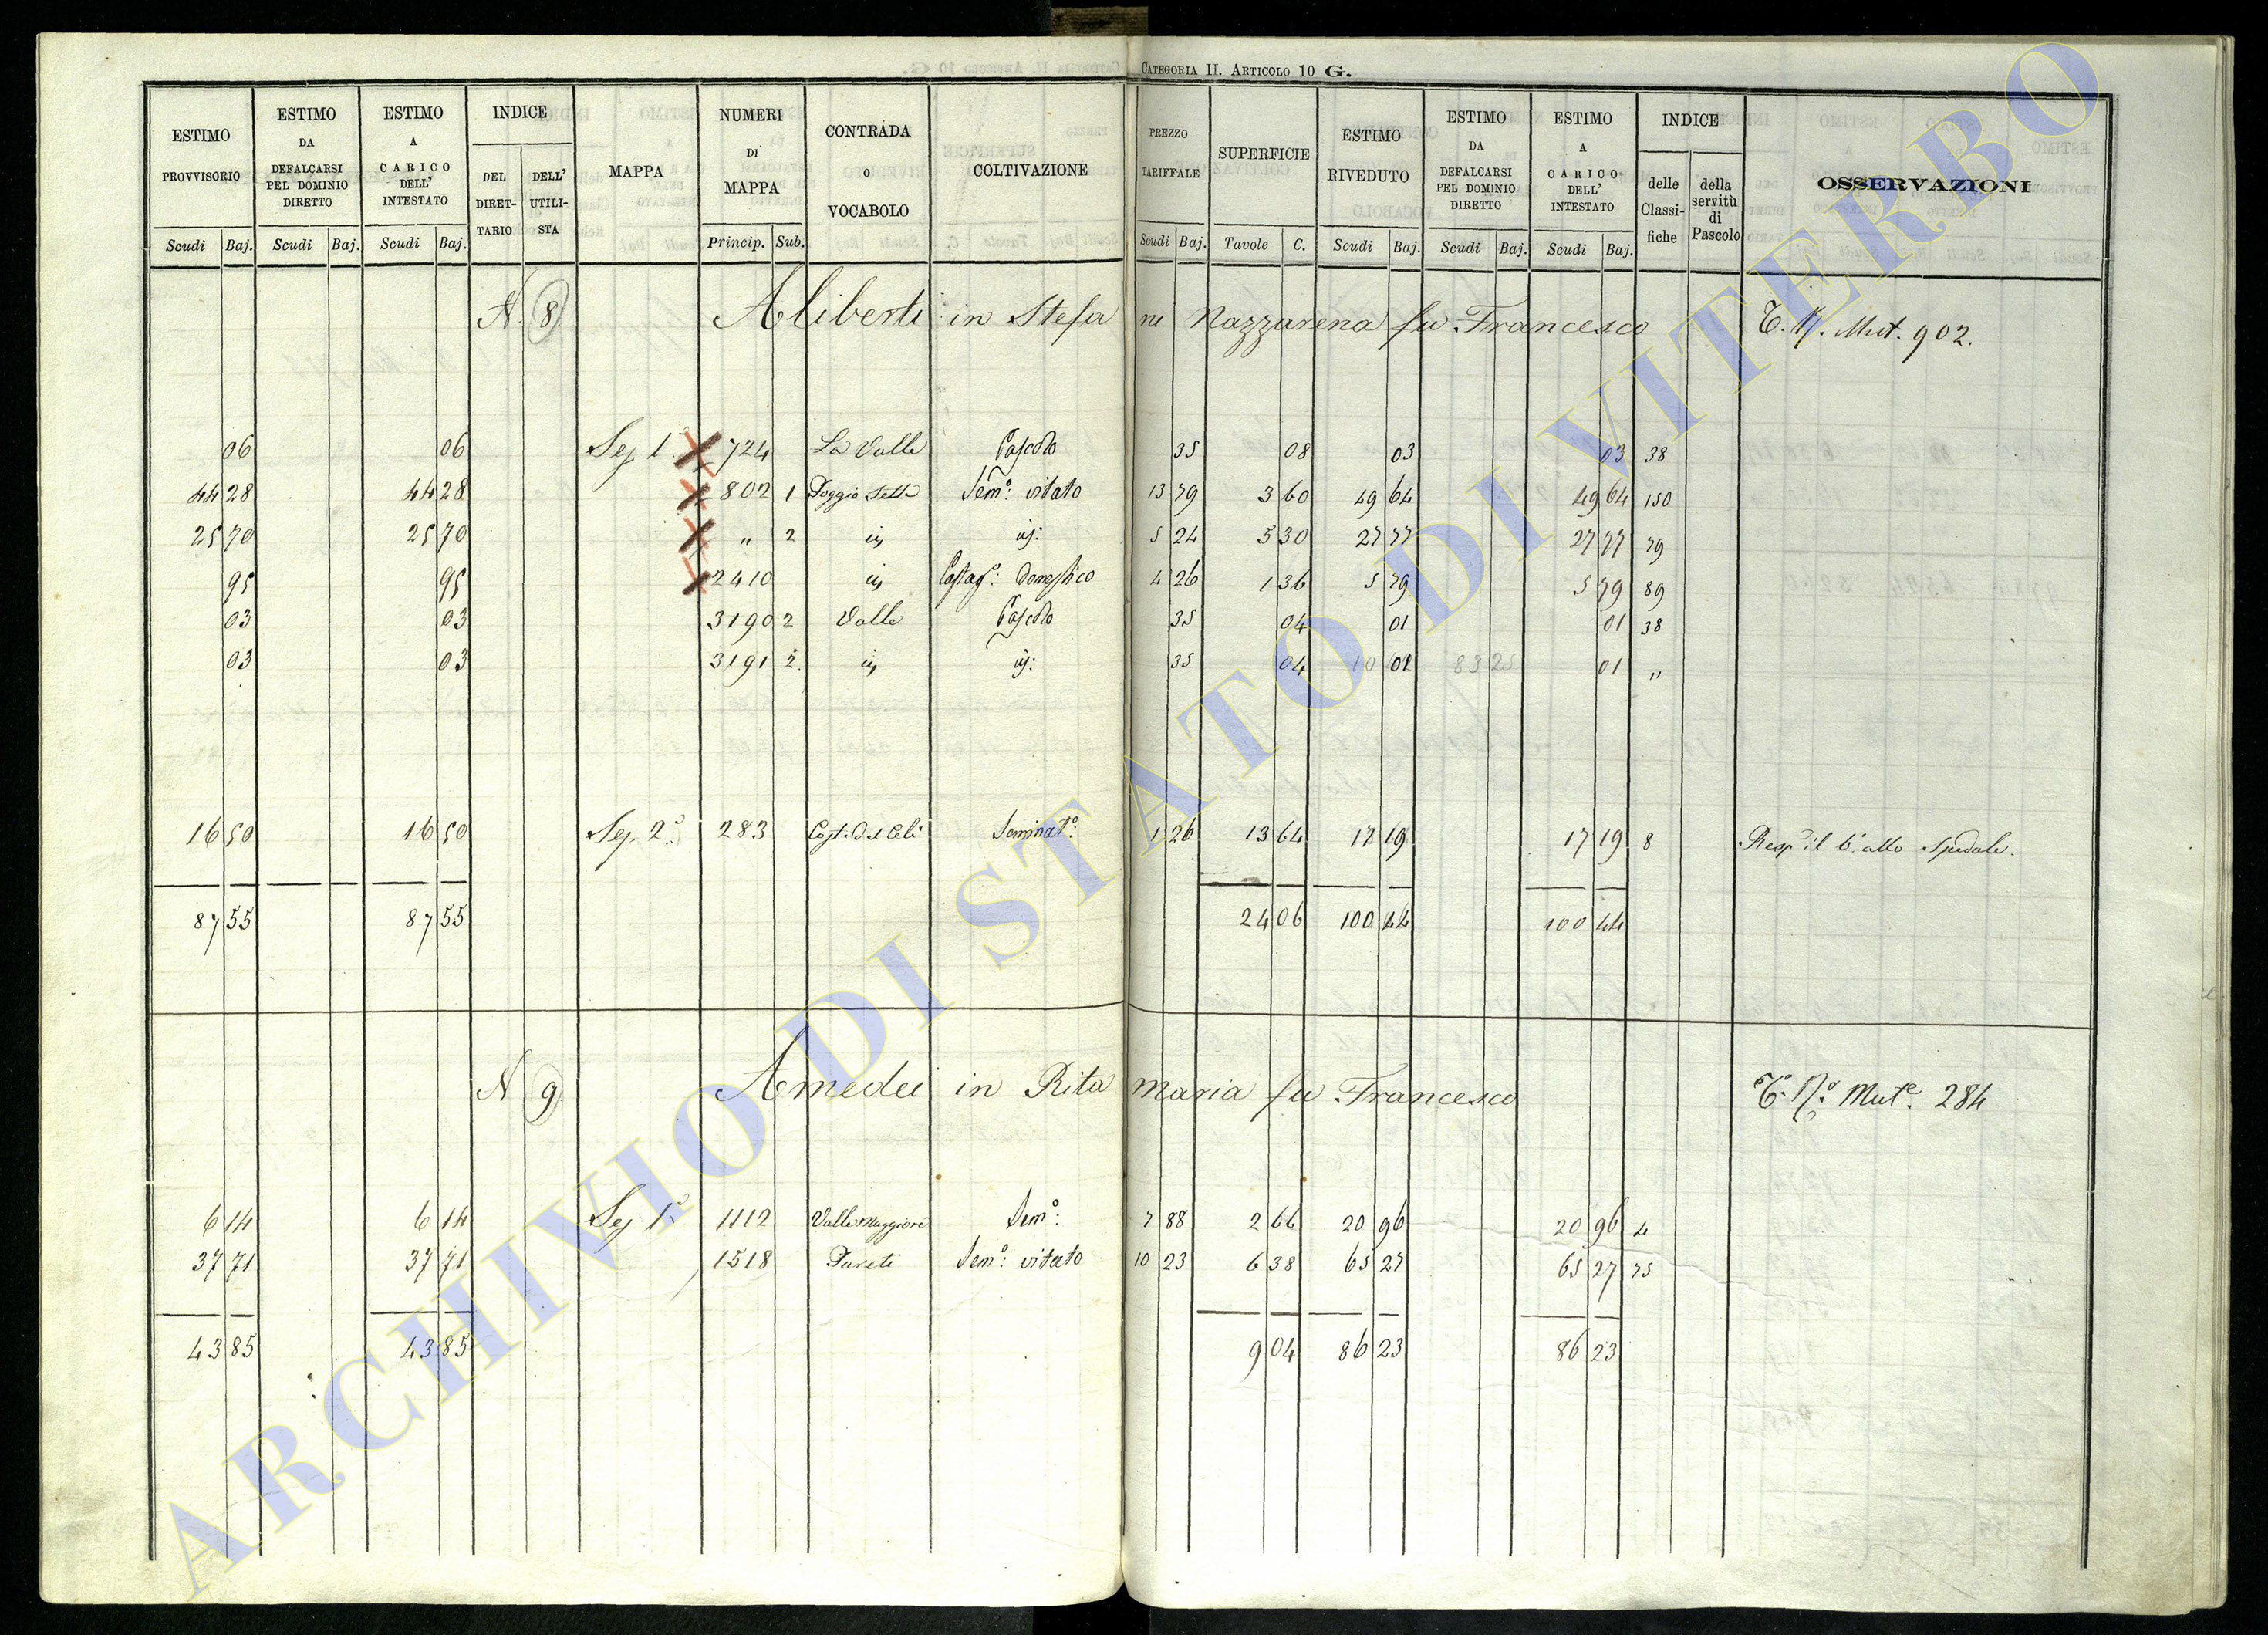 CATEGORIA II. ARTICOLO 10 G.
ESTIMO PROVVISORIO Scudi Baj. | ESTIMO DA DEFALCARSI PEL DOMINIO DIRETTO Scudi Baj. | ESTIMO A CARICO DELL' INTESTATO Scudi Baj. | INDICE DEL DIRET-TARIO DELL' UTILI-STA | MAPPA | NUMERI DI MAPPA Princip. Sub. | CONTRADA O VOCABOLO | COLTIVAZIONE | PREZZO TARIFFALE Scudi Baj. | SUPERFICIE Tavole C. | ESTIMO RIVEDUTO Scudi Baj. | ESTIMO DA DEFALCARSI PEL DOMINIO DIRETTO Scudi Baj. | ESTIMO A CARICO DELL' INTESTATO Scudi Baj. | INDICE delle Classi-fiche della servitù di Pascolo | OSSERVAZIONI
N. 8 Aliberti in Stefani Nazzarena fu Francesco Mut. 902.
06 06 Sez 1ª 724 La Valle Pascolo 35 08 03 03 38
44 28 44 28 802 1 Poggio Sette Semº: vitato 13 79 3 60 49 64 49 64 150
25 70 25 70 " 2 5 24 5 30 27 77 27 77 79
95 95 2410 Castagº: Domestico 4 26 1 36 5 79 5 79 89
03 03 3190 2 Valle Pascolo 35 04 01 01 38
03 03 3191 2 35 04 10 01 83 25 01 "
16 50 16 50 Sez. 2ª 283 Seminatº: 1 26 13 64 17 19 17 19 8 allo Spedale.
87 55 87 55 24 06 100 44 100 44
N 9 Amedei in Rita Maria fu Francesco Mutе. 284
6 14 6 14 Sez 1ª 1112 Valle Maggiore Semº: 7 88 2 66 20 96 20 96 4
37 71 37 71 1518 Pareti Semº: vitato 10 23 6 38 65 27 65 27 75
43 85 43 85 9 04 86 23 86 23
ARCHIVIO DI STATO DI VITERBO